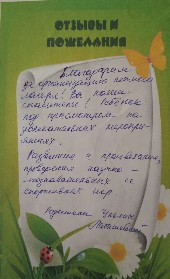 ОТЗЫВЫ И
ПОЖЕЛАНИЯ
Благодарим
за организацию летнего
лагеря! Вы помо-
Ребенок
под присмотром на
увлекательных меропри-
ятиях.
Развития и процветания,
проведения научно
- познавательных и
спортивных игр
Родители